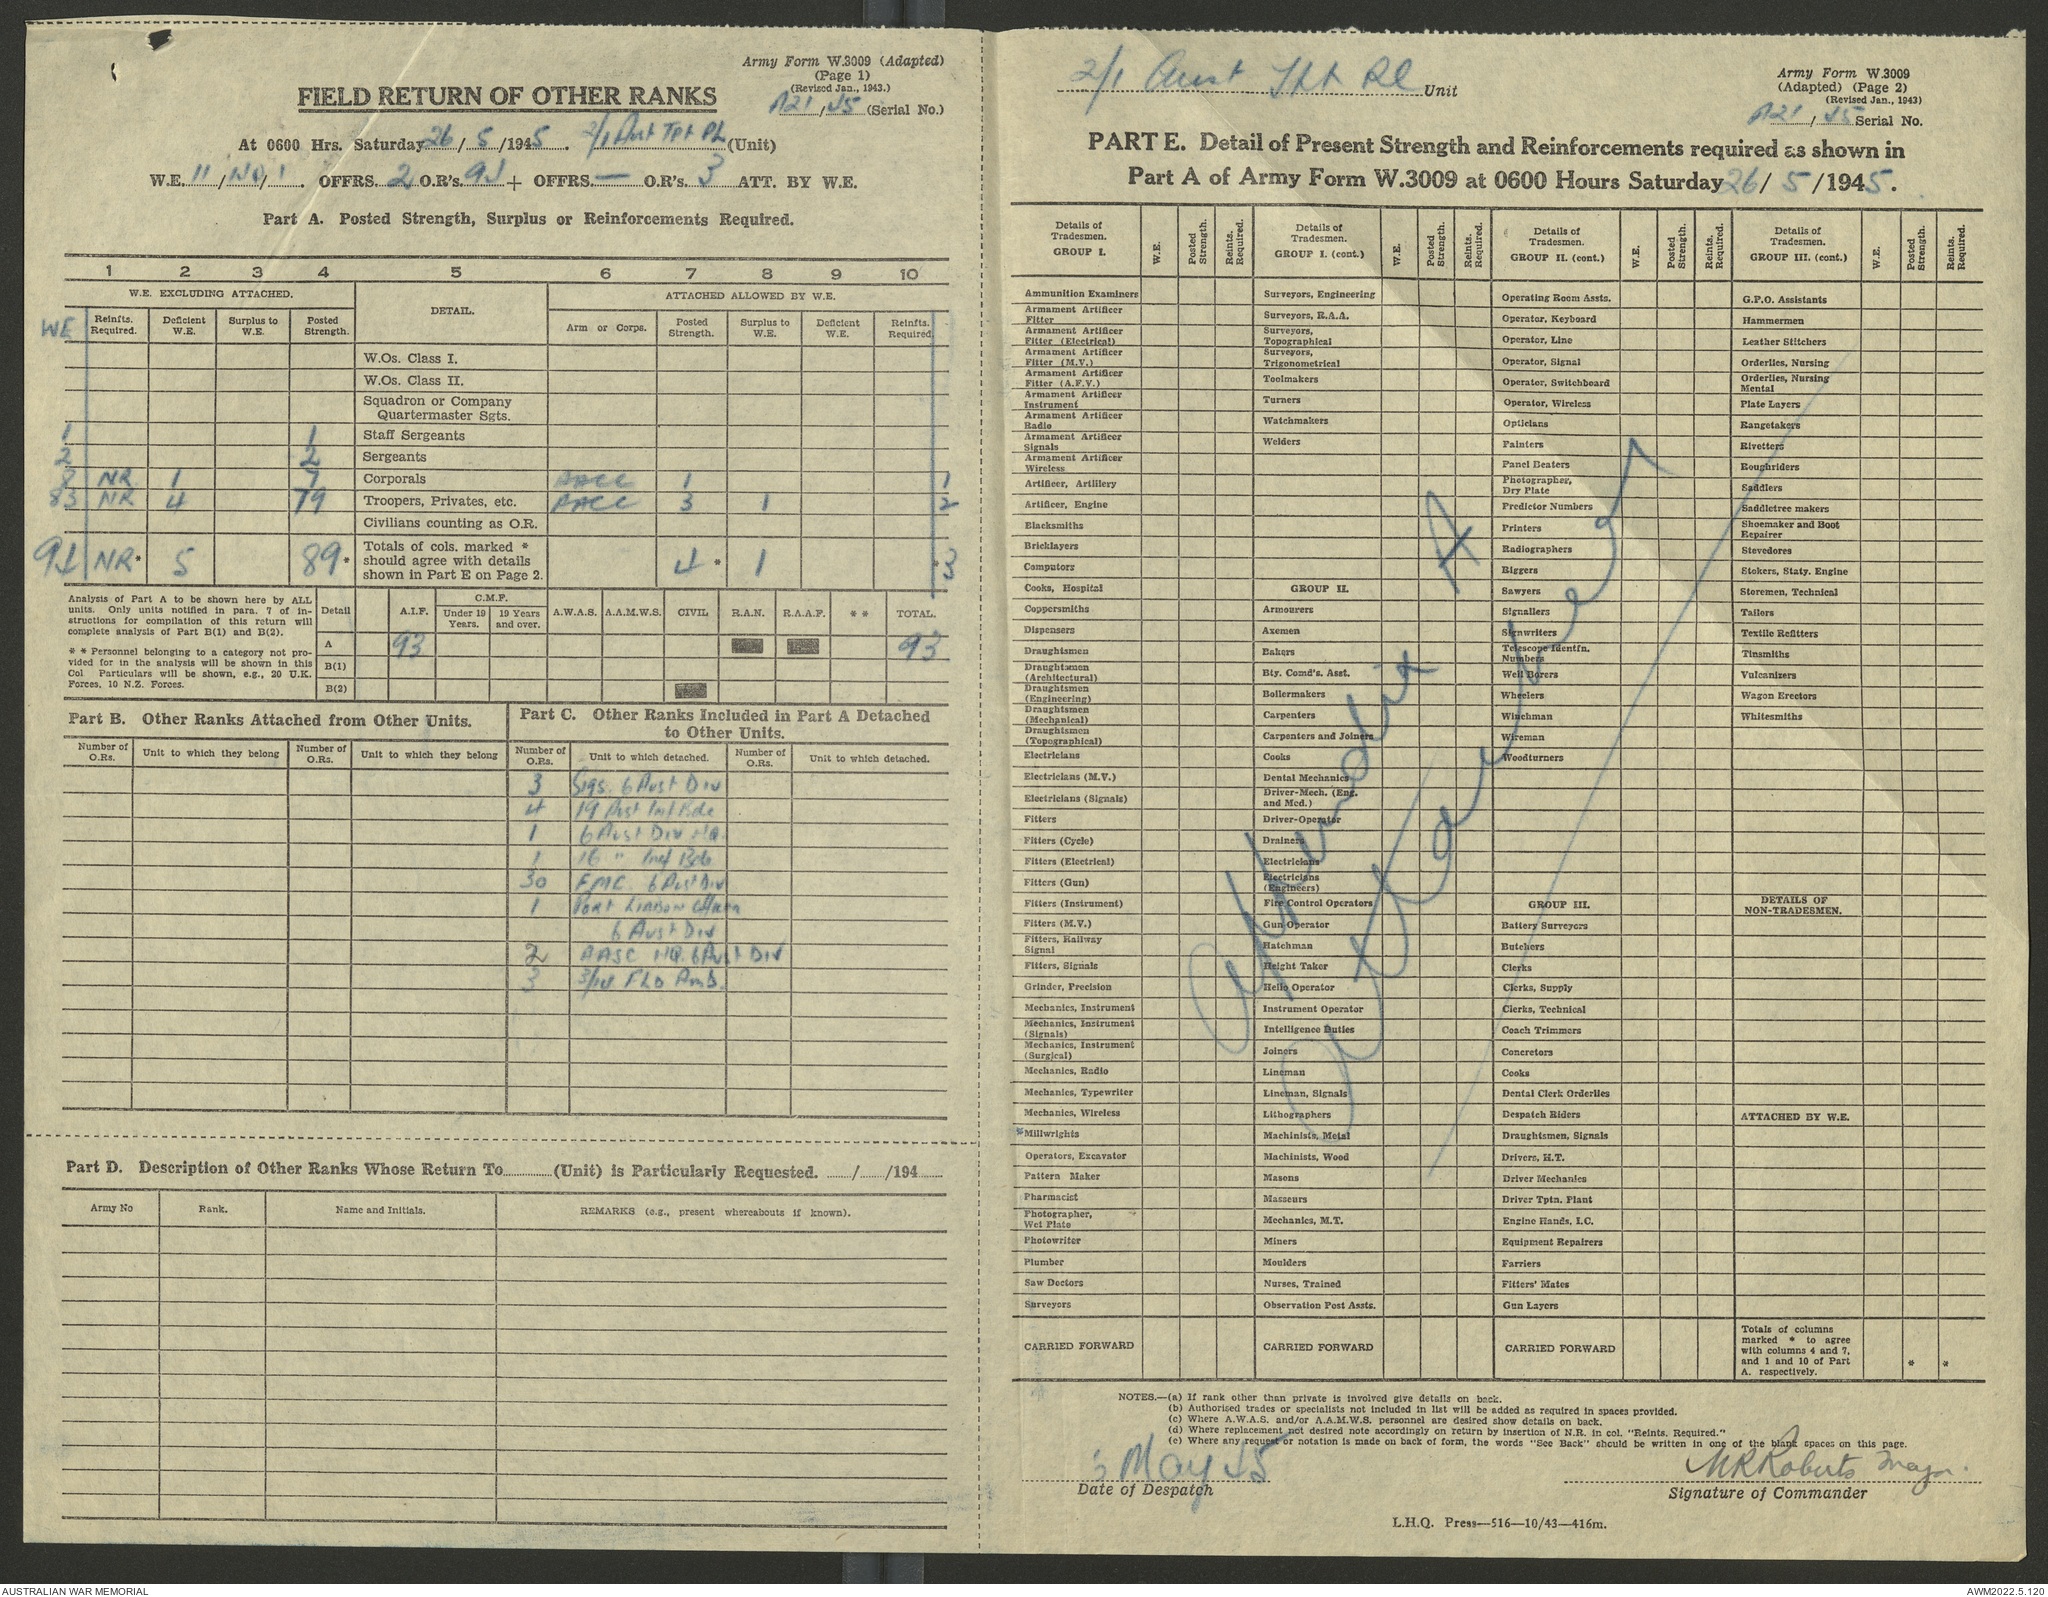 Army Form W.3009 (Adapted)
(Page 1)
(Revised Jan., 1943.)
A21/45 (Serial No.)
FIELD RETURN OF OTHER RANKS
At 0600 Hrs. Saturday 26/5/1945. 2/1 Aust Tpt Pl (Unit)
W.E. 11/ /1. OFFRS. 2 O.R's. 94 + OFFRS. — O.R's. 3 ATT. BY W.E.
Part A. Posted Strength, Surplus or Reinforcements Required.
1 2 3 4 5 6 7 8 9 10
W.E. EXCLUDING ATTACHED. DETAIL. ATTACHED ALLOWED BY W.E.
WE Reinfts. Required. Deficient W.E. Surplus to W.E. Posted Strength. Arm or Corps. Posted Strength. Surplus to W.E. Deficient W.E. Reinfts. Required.
W.Os. Class I.
W.Os. Class II.
Squadron or Company
Quartermaster Sgts.
1 1 Staff Sergeants
2 2 Sergeants
8 NR 1 7 Corporals AACC 1 1
83 NR 4 79 Troopers, Privates, etc. AACC 3 1 2
Civilians counting as O.R.
94 NR* 5 89* Totals of cols. marked * should agree with details shown in Part E on Page 2. 4* 1 *3
Analysis of Part A to be shown here by ALL
units. Only units notified in para. 7 of in-
structions for compilation of this return will
complete analysis of Part B(1) and B(2).
* * Personnel belonging to a category not pro-
vided for in the analysis will be shown in this
Col Particulars will be shown, e.g., 20 U.K.
Forces, 10 N.Z. Forces.
Detail A.I.F. C.M.F. Under 19 Years. 19 Years and over. A.W.A.S. A.A.M.W.S. CIVIL R.A.N. R.A.A.F. * * TOTAL.
A 93 93
B(1)
B(2)
Part B. Other Ranks Attached from Other Units.
Number of O.Rs. Unit to which they belong Number of O.Rs. Unit to which they belong
Part C. Other Ranks Included in Part A Detached
to Other Units.
Number of O.Rs. Unit to which detached. Number of O.Rs. Unit to which detached.
3 Sigs. 6 Aust Div
4 19 Aust Inf Bde
1 6 Aust Div HQ.
1 16 " Inf Bde
30 FMC. 6 Aust Div
1 Port
6 Aust Div
2 AASC HQ. 6 Aust Div
3 3/14 Fld Amb.
Part D. Description of Other Ranks Whose Return To (Unit) is Particularly Requested. / /194
Army No Rank. Name and Initials. REMARKS (e.g., present whereabouts if known).
2/1 Aust Tpt Pl Unit
Army Form W.3009
(Adapted) (Page 2)
(Revised Jan., 1943)
A21/45 Serial No.
PART E. Detail of Present Strength and Reinforcements required as shown in
Part A of Army Form W.3009 at 0600 Hours Saturday 26/5/1945.
Details of Tradesmen. GROUP I. W.E. Posted Strength. Reints. Required.
Ammunition Examiners
Armament Artificer Fitter
Armament Artificer Fitter (Electrical)
Armament Artificer Fitter (M.V.)
Armament Artificer Fitter (A.F.V.)
Armament Artificer Instrument
Armament Artificer Radio
Armament Artificer Signals
Armament Artificer Wireless
Artificer, Artillery
Artificer, Engine
Blacksmiths
Bricklayers
Computors
Cooks, Hospital
Coppersmiths
Dispensers
Draughtsmen
Draughtsmen (Architectural)
Draughtsmen (Engineering)
Draughtsmen (Mechanical)
Draughtsmen (Topographical)
Electricians
Electricians (M.V.)
Electricians (Signals)
Fitters
Fitters (Cycle)
Fitters (Electrical)
Fitters (Gun)
Fitters (Instrument)
Fitters (M.V.)
Fitters, Railway Signal
Fitters, Signals
Grinder, Precision
Mechanics, Instrument
Mechanics, Instrument (Signals)
Mechanics, Instrument (Surgical)
Mechanics, Radio
Mechanics, Typewriter
Mechanics, Wireless
*Millwrights
Operators, Excavator
Pattern Maker
Pharmacist
Photographer, Wet Plate
Photowriter
Plumber
Saw Doctors
Surveyors
CARRIED FORWARD
Details of Tradesmen. GROUP I. (cont.) W.E. Posted Strength. Reints. Required.
Surveyors, Engineering
Surveyors, R.A.A.
Surveyors, Topographical
Surveyors, Trigonometrical
Toolmakers
Turners
Watchmakers
Welders
GROUP II.
Armourers
Axemen
Bakers
Bty. Comd's. Asst.
Boilermakers
Carpenters
Carpenters and Joiners
Cooks
Dental Mechanics
Driver-Mech. (Eng. and Mcd.)
Driver-Operator
Drainers
Electricians
Electricians (Engineers)
Fire Control Operators
Gun Operator
Hatchman
Height Taker
Helio Operator
Instrument Operator
Intelligence Duties
Joiners
Lineman
Lineman, Signals
Lithographers
Machinists, Metal
Machinists, Wood
Masons
Masseurs
Mechanics, M.T.
Miners
Moulders
Nurses, Trained
Observation Post Assts.
CARRIED FORWARD
Details of Tradesmen. GROUP II. (cont.) W.E. Posted Strength. Reints. Required.
Operating Room Assts.
Operator, Keyboard
Operator, Line
Operator, Signal
Operator, Switchboard
Operator, Wireless
Opticians
Painters
Panel Beaters
Photographer, Dry Plate
Predictor Numbers
Printers
Radiographers
Riggers
Sawyers
Signallers
Signwriters
Telescope Identfn. Numbers
Well Borers
Wheelers
Winchman
Wireman
Woodturners
GROUP III.
Battery Surveyors
Butchers
Clerks
Clerks, Supply
Clerks, Technical
Coach Trimmers
Concretors
Cooks
Dental Clerk Orderlies
Despatch Riders
Draughtsmen, Signals
Drivers, H.T.
Driver Mechanics
Driver Tptn. Plant
Engine Hands, I.C.
Equipment Repairers
Farriers
Fitters' Mates
Gun Layers
CARRIED FORWARD
Details of Tradesmen. GROUP III. (cont.) W.E. Posted Strength. Reints. Required.
G.P.O. Assistants
Hammermen
Leather Stitchers
Orderlies, Nursing
Orderlies, Nursing Mental
Plate Layers
Rangetakers
Rivetters
Roughriders
Saddlers
Saddletree makers
Shoemaker and Boot Repairer
Stevedores
Stokers, Staty. Engine
Storemen, Technical
Tailors
Textile Refitters
Tinsmiths
Vulcanizers
Wagon Erectors
Whitesmiths
DETAILS OF NON-TRADESMEN.
ATTACHED BY W.E.
Totals of columns marked * to agree with columns 4 and 7, and 1 and 10 of Part A. respectively. * *
Appendix A
NOTES.—(a) If rank other than private is involved give details on back.
(b) Authorised trades or specialists not included in list will be added as required in spaces provided.
(c) Where A.W.A.S. and/or A.A.M.W.S. personnel are desired show details on back.
(d) Where replacement not desired note accordingly on return by insertion of N.R. in col. "Reints. Required."
(e) Where any request or notation is made on back of form, the words "See Back" should be written in one of the blank spaces on this page.
May 45
Date of Despatch
MRRoberts Major.
Signature of Commander
L.H.Q. Press—516—10/43—416m.
AUSTRALIAN WAR MEMORIAL
AWM2022.5.120